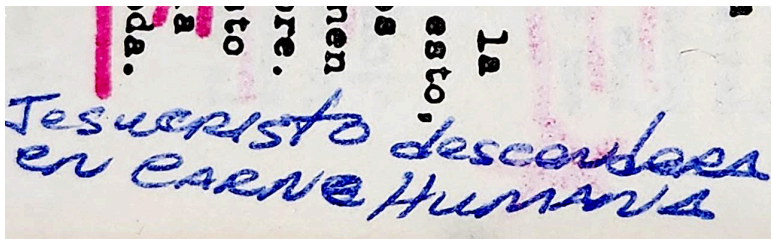 la
esto,
os
nen
ore.
to
a
da.
Jesucristo descendera
en CARNe HumANA